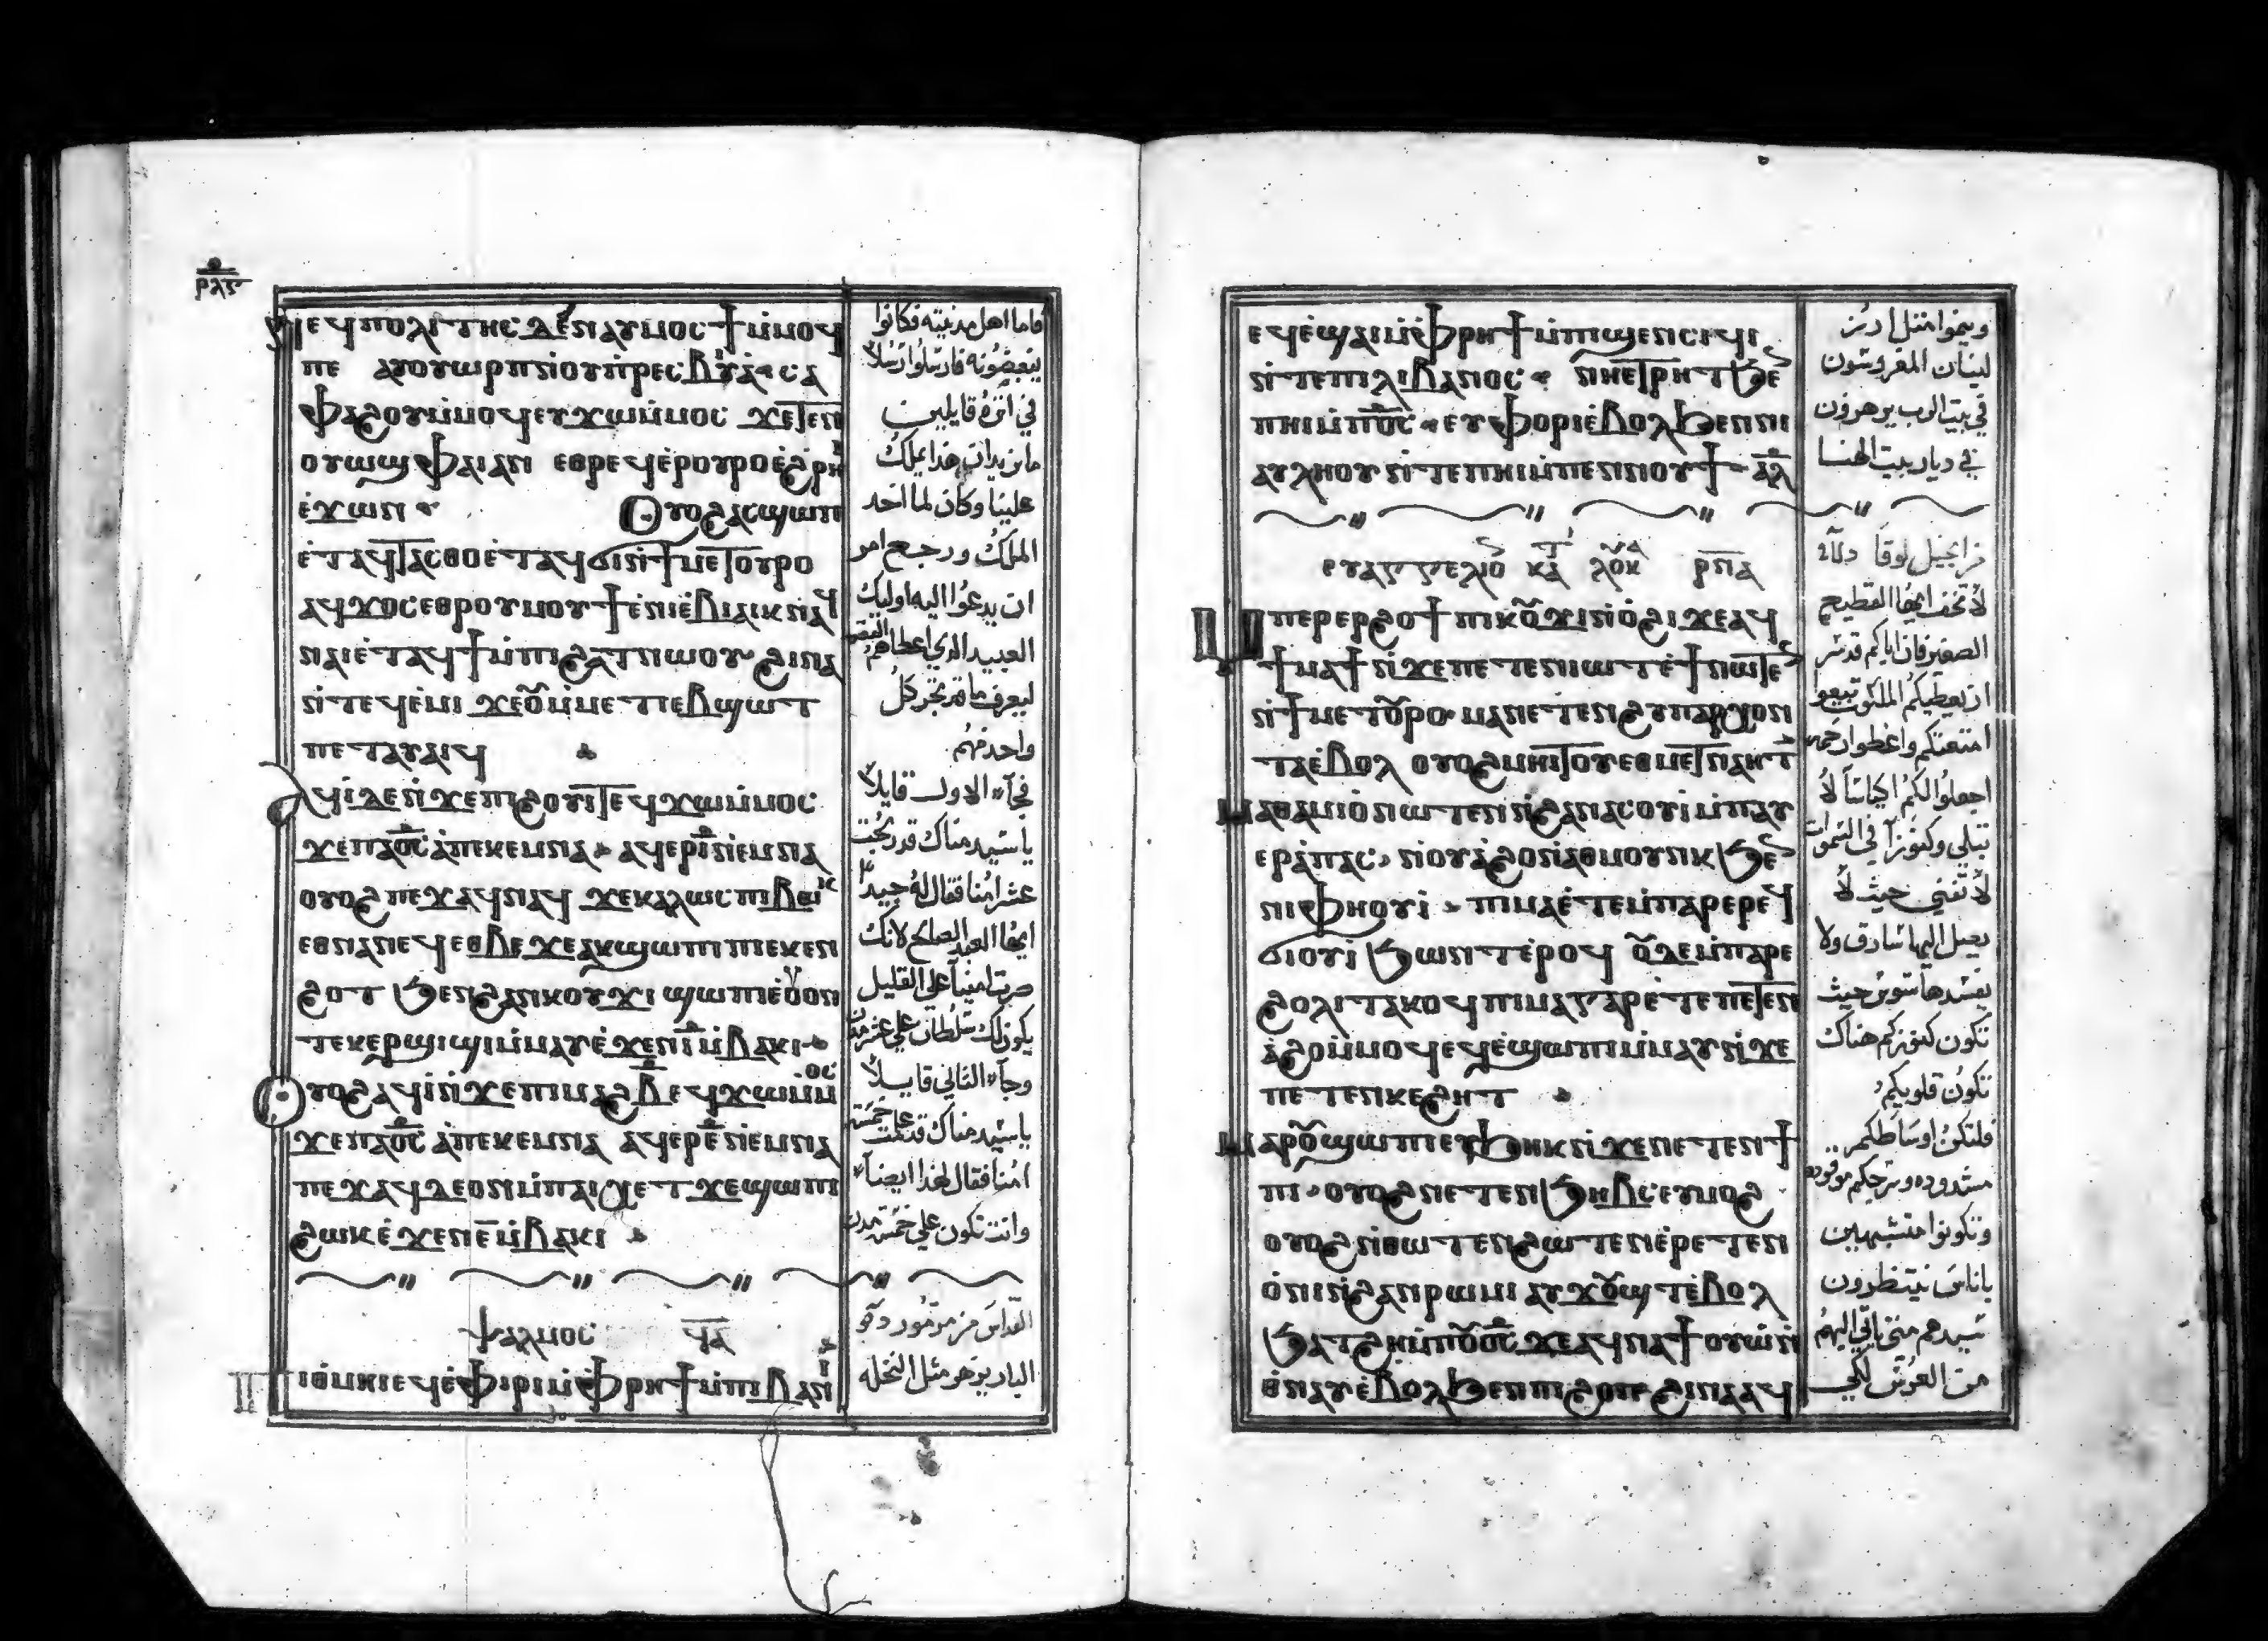 ⲣⲗⲋ
ⲛⲉϥⲡⲟⲗⲓⲧⲏⲥ ⲇⲉⲛⲁⲩⲙⲟⲥϯⲙ̀ⲙⲟϥ
ⲡⲉ ⲁⲩⲟⲩⲱⲣⲡⲛ̀ⲟⲩⲡ̀ⲣⲉⲥⲃⲩⲁ̀ ⲥⲁ
ⲫⲁϩⲟⲩⲙ̀ⲙⲟϥⲉⲩϫⲱⲙ̀ⲙⲟⲥ ϫⲉⲧⲉⲛ
ⲟⲩⲱϣⲫⲁⲓⲁⲛ ⲉⲑⲣⲉϥⲉ̀ⲣⲟⲩⲣⲟⲉ̀ϩⲣⲏ
ⲉ̀ϫⲱⲛ ⲟⲩⲟϩⲁⲥϣⲱⲡⲓ
ⲉ̀ⲧⲁϥⲧⲁⲥⲑⲟⲉ̀ⲧⲁϥϭⲓⲛ̀ϯⲙⲉⲧⲟⲩⲣⲟ
ⲁϥϫⲟⲥⲉⲑⲣⲟⲩⲙⲟⲩϯⲉ̀ⲛⲓⲉ̀ⲃⲓⲁⲓⲕⲛⲁϥ
ⲛⲁⲓⲉ̀ⲧⲁϥϯⲙ̀ⲡⲓϩⲁⲧⲛⲱⲟⲩ ϩⲓⲛⲁ
ⲛ̀ⲧⲉϥⲉ̀ⲙⲓ ϫⲉⲟⲩⲙ̀ⲙⲉⲧⲓⲉⲃϣⲱⲧ
ⲡⲉⲧⲁⲩⲁⲓϥ
ⲁϥⲓ̀ⲇⲉⲛ̀ϫⲉⲡϩⲟⲩⲓⲧⲉϥϫⲱⲙ̀ⲙⲟⲥ
ϫⲉⲡⲁⲟ̅ⲥ̅ⲁ̀ⲡⲉⲕⲉⲙⲛⲁ ⲁϥⲉⲣⲓ̅ⲛ̀ⲉⲙⲛⲁ
ⲟⲩⲟϩⲡⲉϫⲁϥⲛⲁϥ ϫⲉⲕⲁⲗⲱⲥⲡⲓⲃⲱⲕ
ⲉⲑⲛⲁⲛⲉϥⲉⲑⲃⲉϫⲉⲁⲕϣⲱⲡⲓⲡⲉⲕⲉⲛ
ϩⲟⲧ ϧⲉⲛϩⲁⲛⲕⲟⲩϫⲓ ϣⲱⲡⲓⲉ̀ⲟⲩⲟⲛ
ⲧⲉⲕⲉⲣϣⲓϣⲓⲙ̀ⲙⲁⲩⲉ̀ϫⲉⲛⲓ̅ⲙ̀ⲃⲁⲕⲓ
ⲟⲩⲟϩⲁϥⲓ̀ⲛ̀ϫⲉⲡⲓⲙⲁϩⲃ̅ⲉϥϫⲱⲙ̀ⲙⲟⲥ
ϫⲉⲡⲁⲟ̅ⲥ̅ⲁ̀ⲡⲉⲕⲉⲙⲛⲁ ⲁϥⲉⲣⲉ̅ⲛ̀ⲉⲙⲛⲁ
ⲡⲉϫⲁϥⲇⲉⲟⲛⲙ̀ⲡⲁⲓⲭⲉⲧ ϫⲉϣⲱⲡⲓ
ϩⲱⲕⲉ̀ϫⲉⲛⲉ̅ⲙ̀ⲃⲁⲕⲓ
ⲯⲁⲗⲙⲟⲥ ϥ̅ⲁ̅
ⲡⲓⲑⲙⲏⲓⲉϥⲉ̀ⲫⲓⲣⲓⲙ̀ⲫⲣⲏϯⲙ̀ⲡⲓⲃⲁⲛⲓ
فاما اهل مدينته فكانوا
يبغضونه فارسلوا رسلا
في اثره قايلين
ما نريد ان هذا يملك
علينا وكان لما اخذ
الملك ورجع امر
ان يدعوا اليه اوليك
العبيد الذي اعطاهم الفضة
ليعرف ما قد تجر كل
واحد منهم
فجاء الاول قايلا
يا سيد مناك قد ربحت
عشر امنا فقال له جيدا
ايها العبد الصالح لانك
صرت امينا على القليل
يكون لك سلطان علي عشر مدن
وجاء الثاني قايلا
يا سيد مناك قد عملت خمسة
امنا فقال لهذا ايضا
وانت تكون علي خمس مدن
القداس مزمور
البار يزهر مثل النخلة
ⲉϥⲉ̀ϣⲁⲓⲙ̀ⲫⲣⲏϯⲙ̀ⲡⲓϣⲉⲛⲥⲓϥⲓ
ⲛ̀ⲧⲉⲡⲓⲗⲓⲃⲁⲛⲟⲥ ⲛⲏⲉⲧⲣⲏⲧϧⲉⲛ
ⲡⲏⲓⲙ̀ⲡⲟ̅ⲥ̅ ⲉⲩⲫⲟⲣⲓⲉ̀ⲃⲟⲗϧⲉⲛⲛⲓ
ⲁⲩⲗⲏⲟⲩⲛ̀ⲧⲉⲡⲏⲓⲙ̀ⲡⲉⲛⲛⲟⲩϯ ⲁ̅ⲗ̅
ⲉⲩⲁⲅⲅⲉⲗⲓⲟ ⲕⲁⲧ ⲗⲟⲩⲕ ⲣⲡⲁ
ⲙⲡⲉⲣⲉⲣϩⲟϯ ⲡⲓⲕⲟⲩϫⲓⲛ̀ⲟ̀ϩⲓϫⲉⲁϥ
ϯⲙⲁϯⲛ̀ϫⲉⲡⲉⲧⲉⲛⲓⲱⲧⲉ̀ϯⲛⲱⲧⲉⲛ
ⲛ̀ϯⲙⲉⲧⲟⲩⲣⲟ ⲙⲁⲛⲉⲧⲉⲛϩⲩⲡⲁⲣⲭⲟⲛ
ⲧⲁⲉ̀ⲃⲟⲗ ⲟⲩⲟϩⲙⲏⲓⲧⲟⲩⲉⲑⲙⲉⲧⲛⲁⲏⲧ
ⲙⲁⲑⲁⲙⲓⲟ̀ⲛⲱⲧⲉⲛⲛ̀ϩⲁⲛⲁⲥⲟⲩⲓ̀ⲙ̀ⲡⲁⲩ
ⲉⲣⲁ̀ⲡⲁⲥ ⲛ̀ⲟⲩⲁ̀ϩⲟⲛ̀ⲁⲑⲙⲟⲩⲛⲕ ϧⲉⲛ
ⲛⲓⲫⲏⲟⲩⲓ̀ ⲡⲓⲙⲁⲉ̀ⲧⲉⲙ̀ⲡⲁⲣⲉⲣⲉϥ
ϭⲓⲟⲩⲓ̀ ϧⲱⲛⲧⲉ̀ⲣⲟϥ ⲟⲩⲇⲉⲙ̀ⲡⲁⲣⲉ
ϩⲟⲗⲓⲧⲁⲕⲟϥⲡⲓⲙⲁⲅⲁⲣⲉ̀ⲧⲉⲡⲉⲧⲉⲛ
ⲁ̀ϩⲟⲙ̀ⲙⲟϥⲉϥⲉ̀ϣⲱⲡⲓⲙ̀ⲙⲁⲩⲛ̀ϫⲉ
ⲡⲉⲧⲉⲛⲕⲉϩⲏⲧ
ⲙⲁⲣⲟⲩϣⲱⲡⲓⲉⲩⲫⲏⲕⲛ̀ϫⲉⲛⲉⲧⲉⲛϯ
ⲡⲓ ⲟⲩⲟϩⲛⲉⲧⲉⲛϧⲏⲃⲥⲉⲩⲙⲟϩ
ⲟⲩⲟϩⲛ̀ⲑⲱⲧⲉⲛϩⲱⲧⲉⲛⲉ̀ⲣⲉⲧⲉⲛ
ⲟ̀ⲛⲓⲛ̀ϩⲁⲛⲣⲱⲙⲓ ⲁⲩϫⲟⲩϣⲧⲉ̀ⲃⲟⲗ
ϧⲁⲧϩⲏⲙ̀ⲡⲟⲩⲟ̅ⲥ̅ϫⲉⲁϥⲛⲁϯⲟⲩⲱⲛ̀
ⲑ̀ⲛⲁⲩⲉ̀ⲃⲟⲗϧⲉⲛⲡⲓϩⲟⲡ ϩⲓⲛⲁⲁϥ
وينموا مثل ارز
لبنان المغروسون
في بيت الرب يزهرون
في ديار بيت الهنا
من انجيل لوقا
لا تخف ايها القطيع
الصغير فان اباكم قد سر
ان يعطيكم الملكوت بيعوا
امتعتكم واعطوا رحمة
اجعلوا لكم اكياسا لا
تبلي وكنوزا في السموات
لا تفني حيث لا
يصل اليها سارق ولا
يفسدها سوس حيث
تكون كنوزكم هناك
تكون قلوبكم
فلتكون اوساطكم
مشدودة وسرجكم موقودة
وتكونوا متشبهين
باناس ينتظرون
سيدهم متي ياتي اليهم
من العرس لكي